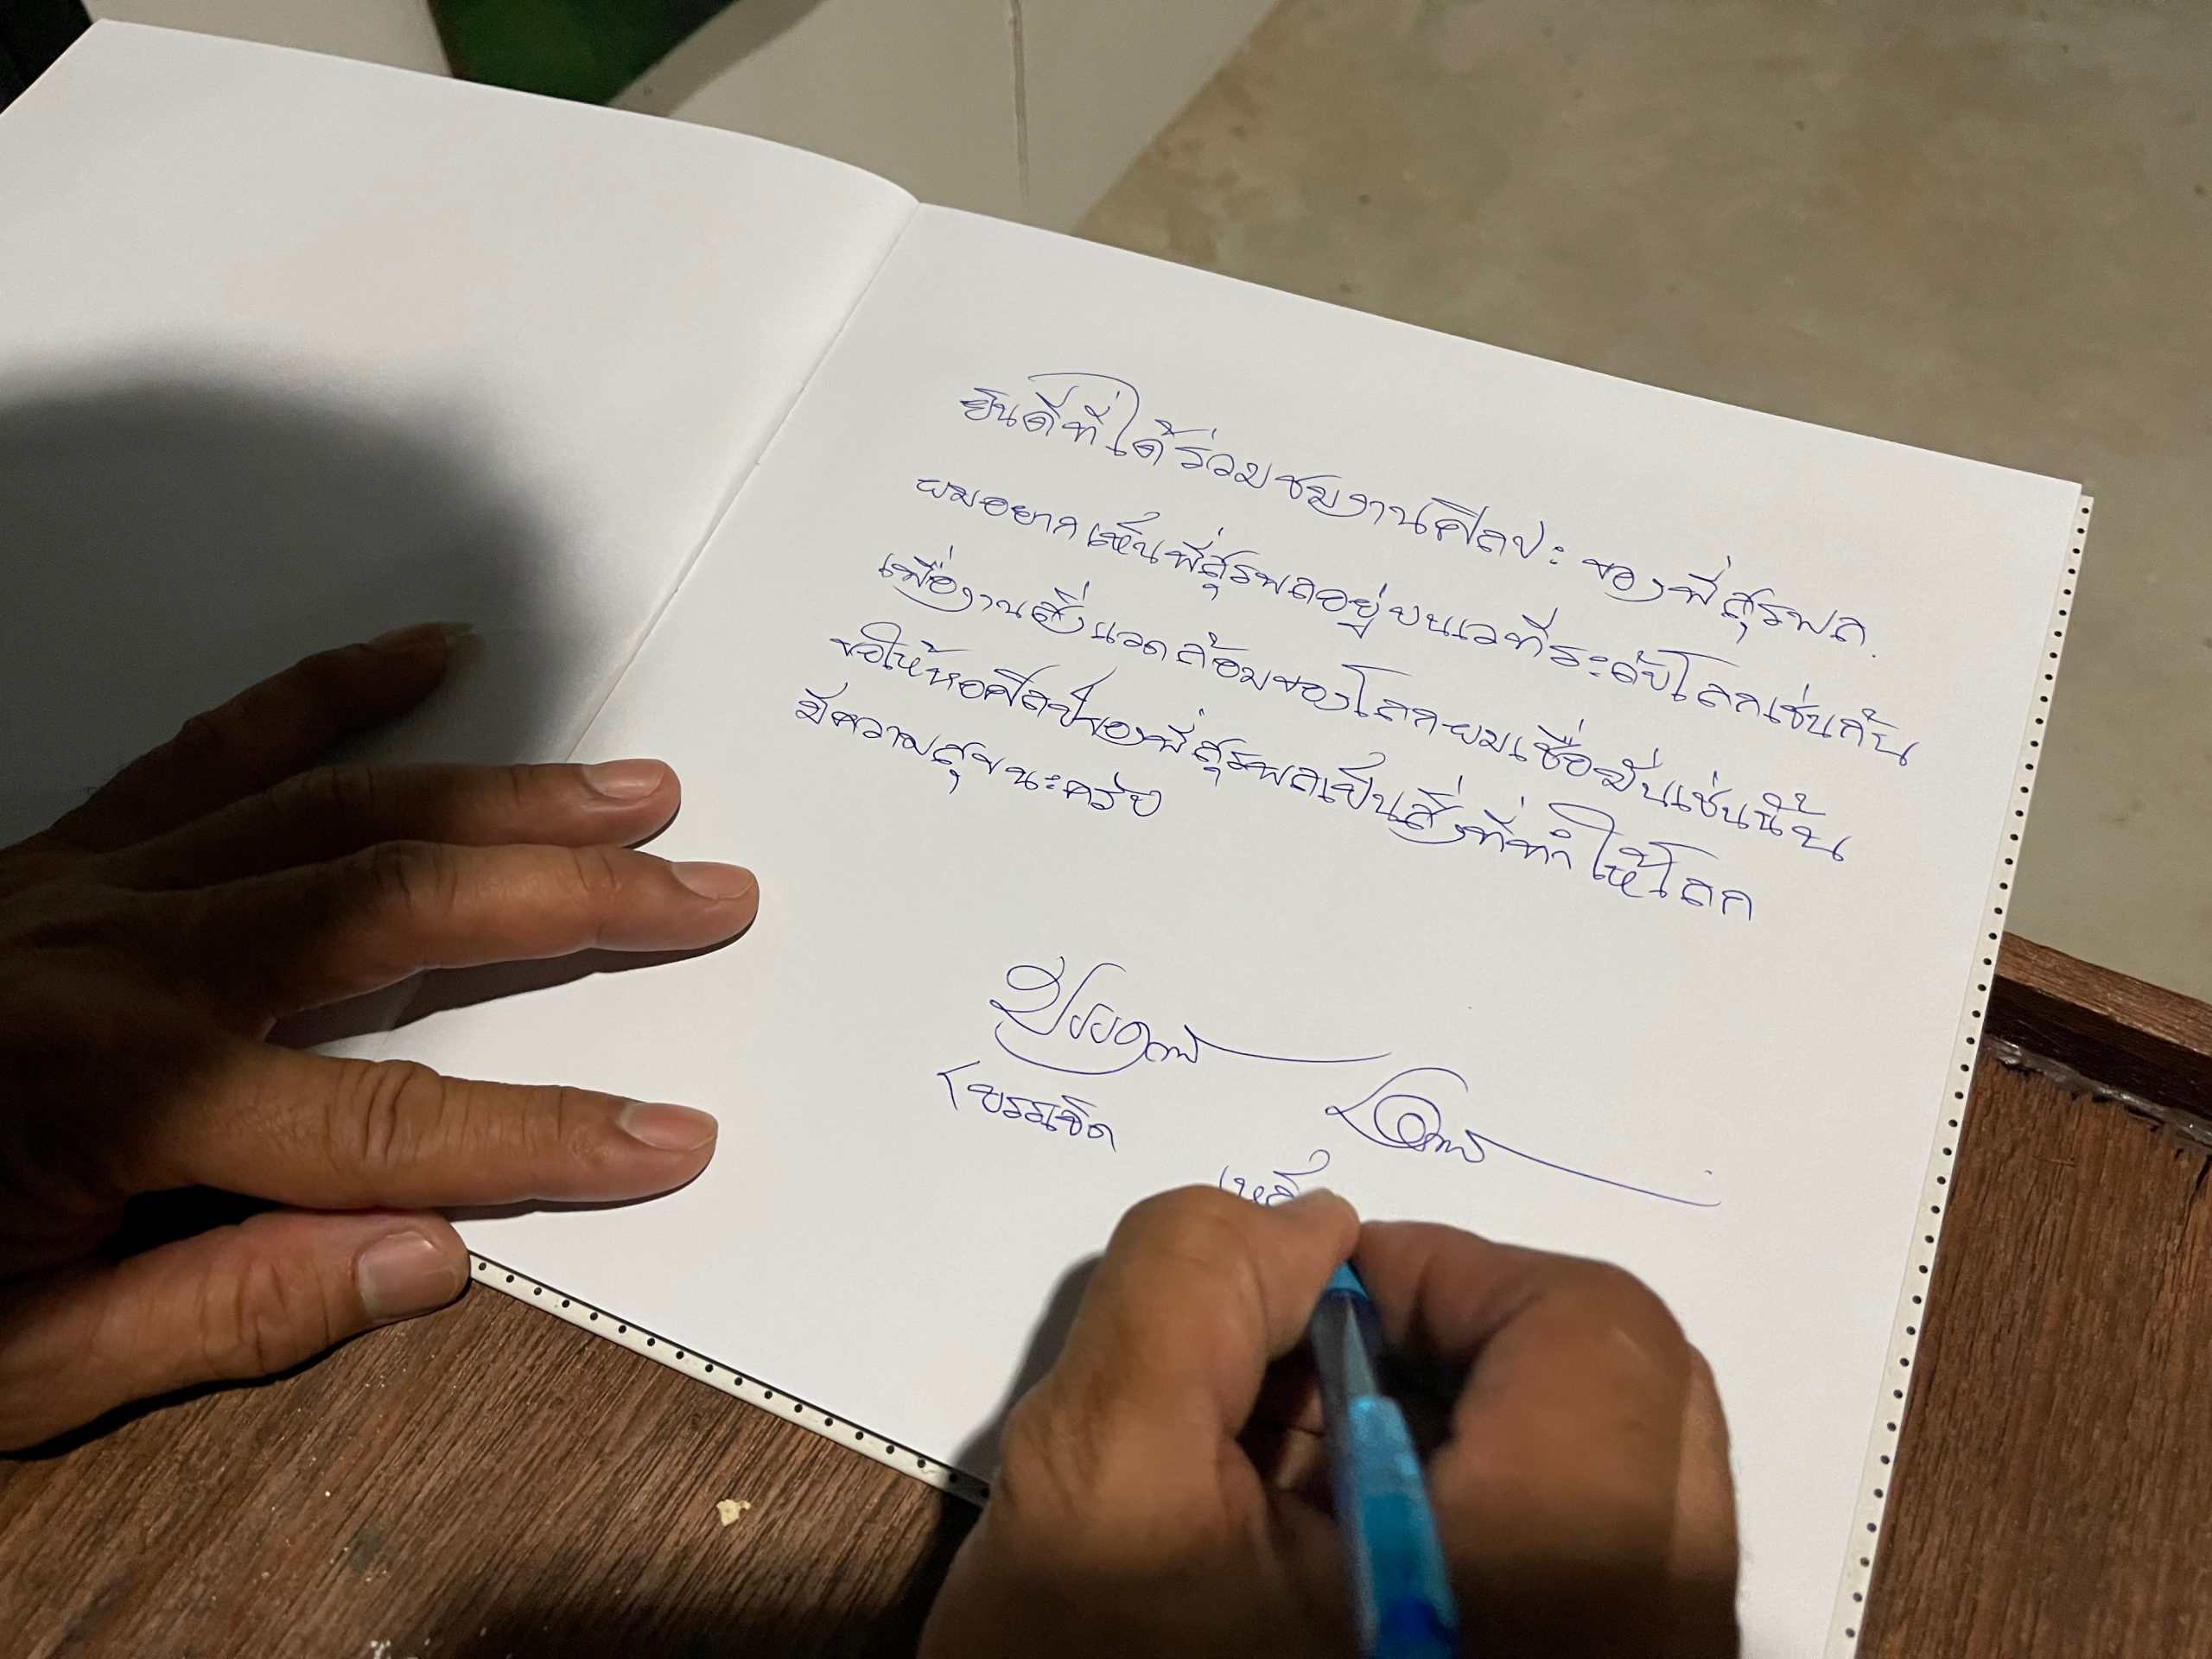 ยินดีที่ได้ร่วมชมงานศิลปะ ของพี่สุรพล.
ผมอยากเห็นพี่สุรพลอยู่บนเวทีระดับโลกเช่นกัน
เพื่องานสิ่งแวดล้อมของโลกผมเชื่อมั่นเช่นนั้น
ขอให้หอศิลป์ของพี่สุรพลเป็นสิ่งที่ทำให้โลก
มีความสุขนะครับ
(บรรเจิด